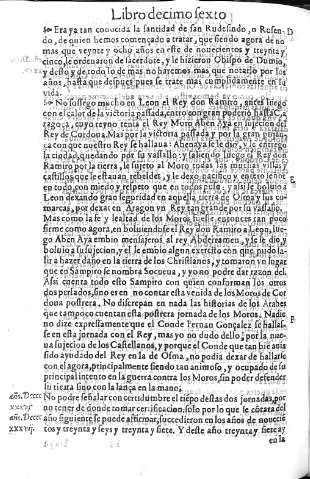 Libro decimo sexto
Era ya tan conocida la santidad de san Rudesindo, o Rosen-
do, de quien hemos començado a tratar, que siendo agora de no
mas que veynte y ocho años en este de nouecientos y treynta y
cinco, le ordenaron de sacerdote, y le hizieron Obispo de Dumio,
y desto y de todo lo de mas no haremos mas que notarlo por los
años, hasta que despues se trate mas cumplidamente en su
vida.
No sossego mucho en Leon el Rey don Ramiro, antes luego
con el calor de la victoria passada, entro con gran poderio hasta Ca-
ragoça, cuyo reyno tenia el Rey Moro Aben Aya en sujecion del
Rey de Cordoua. Mas por la victoria passada y por la gran
con que nuestro Rey se hallaua Aben Aya se le dio, y le entrego
la ciudad, quedando por su vassallo: y saliendo luego el Rey don
Ramiro por la tierra, le sujeto al Moro muchos
castillos que se estauan rebeldes, y le dexo pacifico y entero señor
en todo, con miedo y respeto que en todos puso, y assi se boluio a
Leon dexando gran seguridad en aquella tierra de Osma y sus co-
marcas, por dexar en Aragon vn Rey tan grande por su vassallo.
Mas como la fe y lealtad de los Moros fuesse entonces tan poco
firme como agora, en boluiendose el Rey don Ramiro a Leon, lue-
go Aben Aya embio mensageros al rey Abderramen, y se le dio, y
boluio a su sujecion, y el le embio algun exercito con que pudo sa-
lir a hazer daño en la tierra de los Christianos, y tomaron vn lugar
que en Sampiro se nombra Socueua, y yo no puedo dar razon del.
Assi cuenta todo esto Sampiro con quien conforman los otros
dos perlados, sino es en no contar esta venida de los Moros de Cor
doua postrera. No discrepan en nada las historias de los Arabes
que tampoco cuentan esta postrera jornada de los Moros. Nadie
no dize expressamente que el Conde Fernan Gonçalez se hallas-
se en esta jornada con el Rey, mas yo no dudo dello, por la nue-
ua sujecion de los Castellanos, y porque el Conde que tan bie auia
sido ayudado del Rey en la de Osma, no podia dexar de hallarse
con el agora, principalmente siendo tan animoso, y ocupado de su
principal intento en la guerra contra los Moros, sin poder defender
su tierra sino con la lança en la mano,
No podre señalar con certidumbre el tiepo destas dos jornadas, por
no tener de donde tomar certificacion: solo por lo que se cotara del
año siguiente se puede affirmar, succedieron en los años de nouecie
tos y treynta y seys y treynta y siete. Y deste año treynta y siete ay
en la
año. Dcccc
xxxvj.
año. Dcccc
xxxvij.